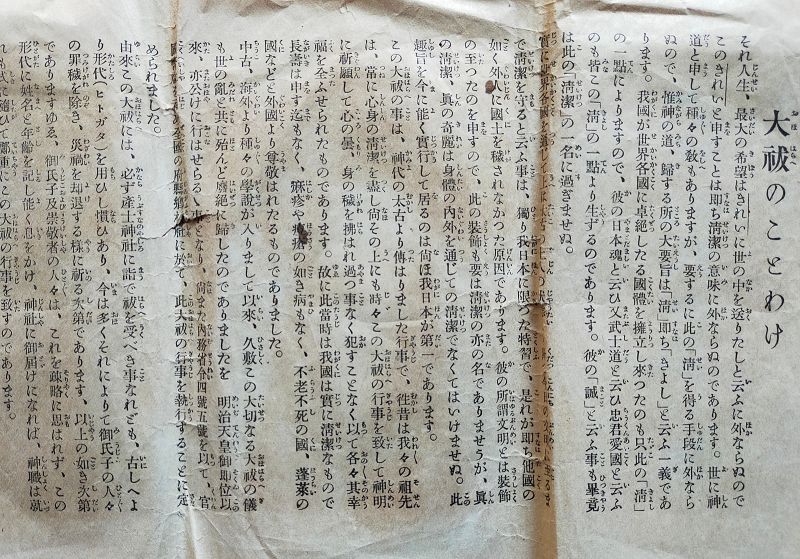 大祓のことわけ
それ人生、最大の希望はきれいに世の中を送りたしと云ふに外ならぬので
このきれいと申すことは即ち清潔の意味に外ならぬのであります。世に神
道と申して種々の教もありますが、要するに此の「清」を得る手段に外なら
ぬので、惟神の道、歸する所の大要旨は「清」即ち「きよし」と云ふ一義であ
ります。我國が世界各國に卓絶したる國體を擁立し來つたのも只此の「清」
の一點によりますので、彼の日本魂と云ひ又武士道と云ひ忠君愛國と云ふ
のも皆この「清」の一點より生ずるのであります。彼の「誠」と云ふ事も畢竟
は此の「清潔」の一名に過ぎませぬ。
で清潔を守ると云ふ事は、獨り我日本に限つた特習で、是れが即ち他國の
如く外人に國土を穢されなかつた原因であります。彼の所謂文明とは裝飾
の至つたのを申すので、此の裝飾も要は清潔の亦の名でありませうが、眞
の清潔、眞の奇麗は身體の內外を通じての清潔でなくてはいけませぬ。此
趣旨を今に能く實行して居るのは尙ほ我日本が第一であります。
この大祓の事は、神代の太古より傳はりました行事で、往昔は我々の祖先
は、常に心身の清潔を盡し尙その上にも時々この大祓の行事を致して神明
に祈願して心の曇、身の穢を拂はれ過つ事なく犯すことなく以て各々其幸
福を全ふせられたものであります。故に此當時は我國は實に清潔なもので
長壽は申す迄もなく、痲疹や疱瘡の如き病もなく、不老不死の國、蓬萊の
國などと外國より尊敬はれたるものでありました。
中古、海外より種々の學說が入りまして以來、久敷この大切なる大祓の儀
も世の亂と共に殆んど廢絕に歸したのでありましたを 明治天皇御卽位以
來、亦公けに行はせらるゝ事となり 尙また內務省令四號五號を以て、官
國の府縣鄕村社に於て、此大祓の行事を執行することに定
められました。
由來この大祓には、必ず產士神社に詣で祓を受べき事なれども、古しへよ
り形代(ヒトガタ)を用ひし慣ひあり、今は多くそれによりて御氏子の人々
の罪穢を除き、災禍を却退する樣に祈る次第であります、以上の如き次第
でありますゆゑ、御氏子及崇敬者の人々は、これを疎略に思はれず、この
形代に姓名と年齡を記し能く息をかけ、神社に御屆けになれば、神職は就
れも式に隨ひて鄭重にこの大祓の行事を致すのであります。